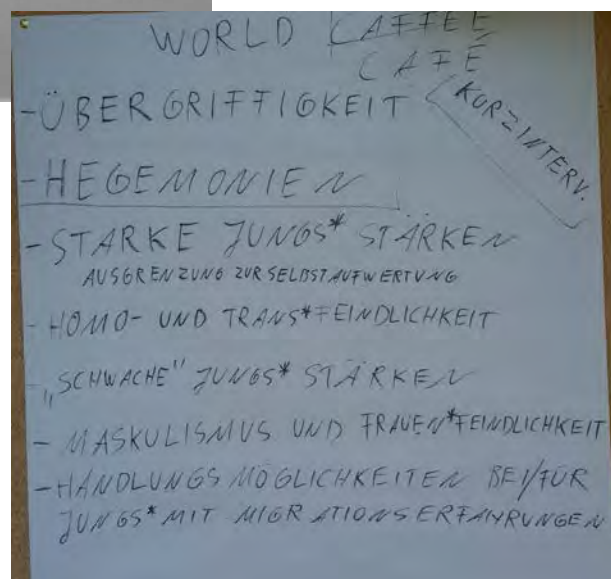 WORLD CAFFEE
CAFÉ
KURZINTERV.
-ÜBERGRIFFIGKEIT
-HEGEMONIEN
-STARKE JUNGS* STÄRKEN
AUSGRENZUNG ZUR SELBSTAUFWERTUNG
-HOMO- UND TRANS*FEINDLICHKEIT
-„SCHWACHE" JUNGS* STÄRKEN
- MASKULISMUS UND FRAUEN*FEINDLICHKEIT
-HANDLUNGSMÖGLICHKEITEN BEI/FÜR
JUNGS* MIT MIGRATIONSERFAHRUNGEN